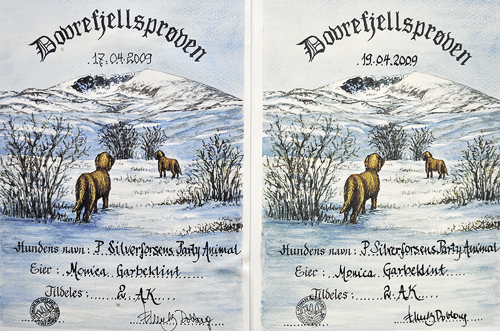 Dovrefjellsprøven
17.04.2009
Hundens navn: P. Silverforsens Party Animal
Eier: Monica Garbeklint
Tildeles: 2. AK.
Dovrefjellsprøven
19.04.2009
Hundens navn: P. Silverforsens Party Animal
Eier: Monica Garbeklint
Tildeles: 2. AK.